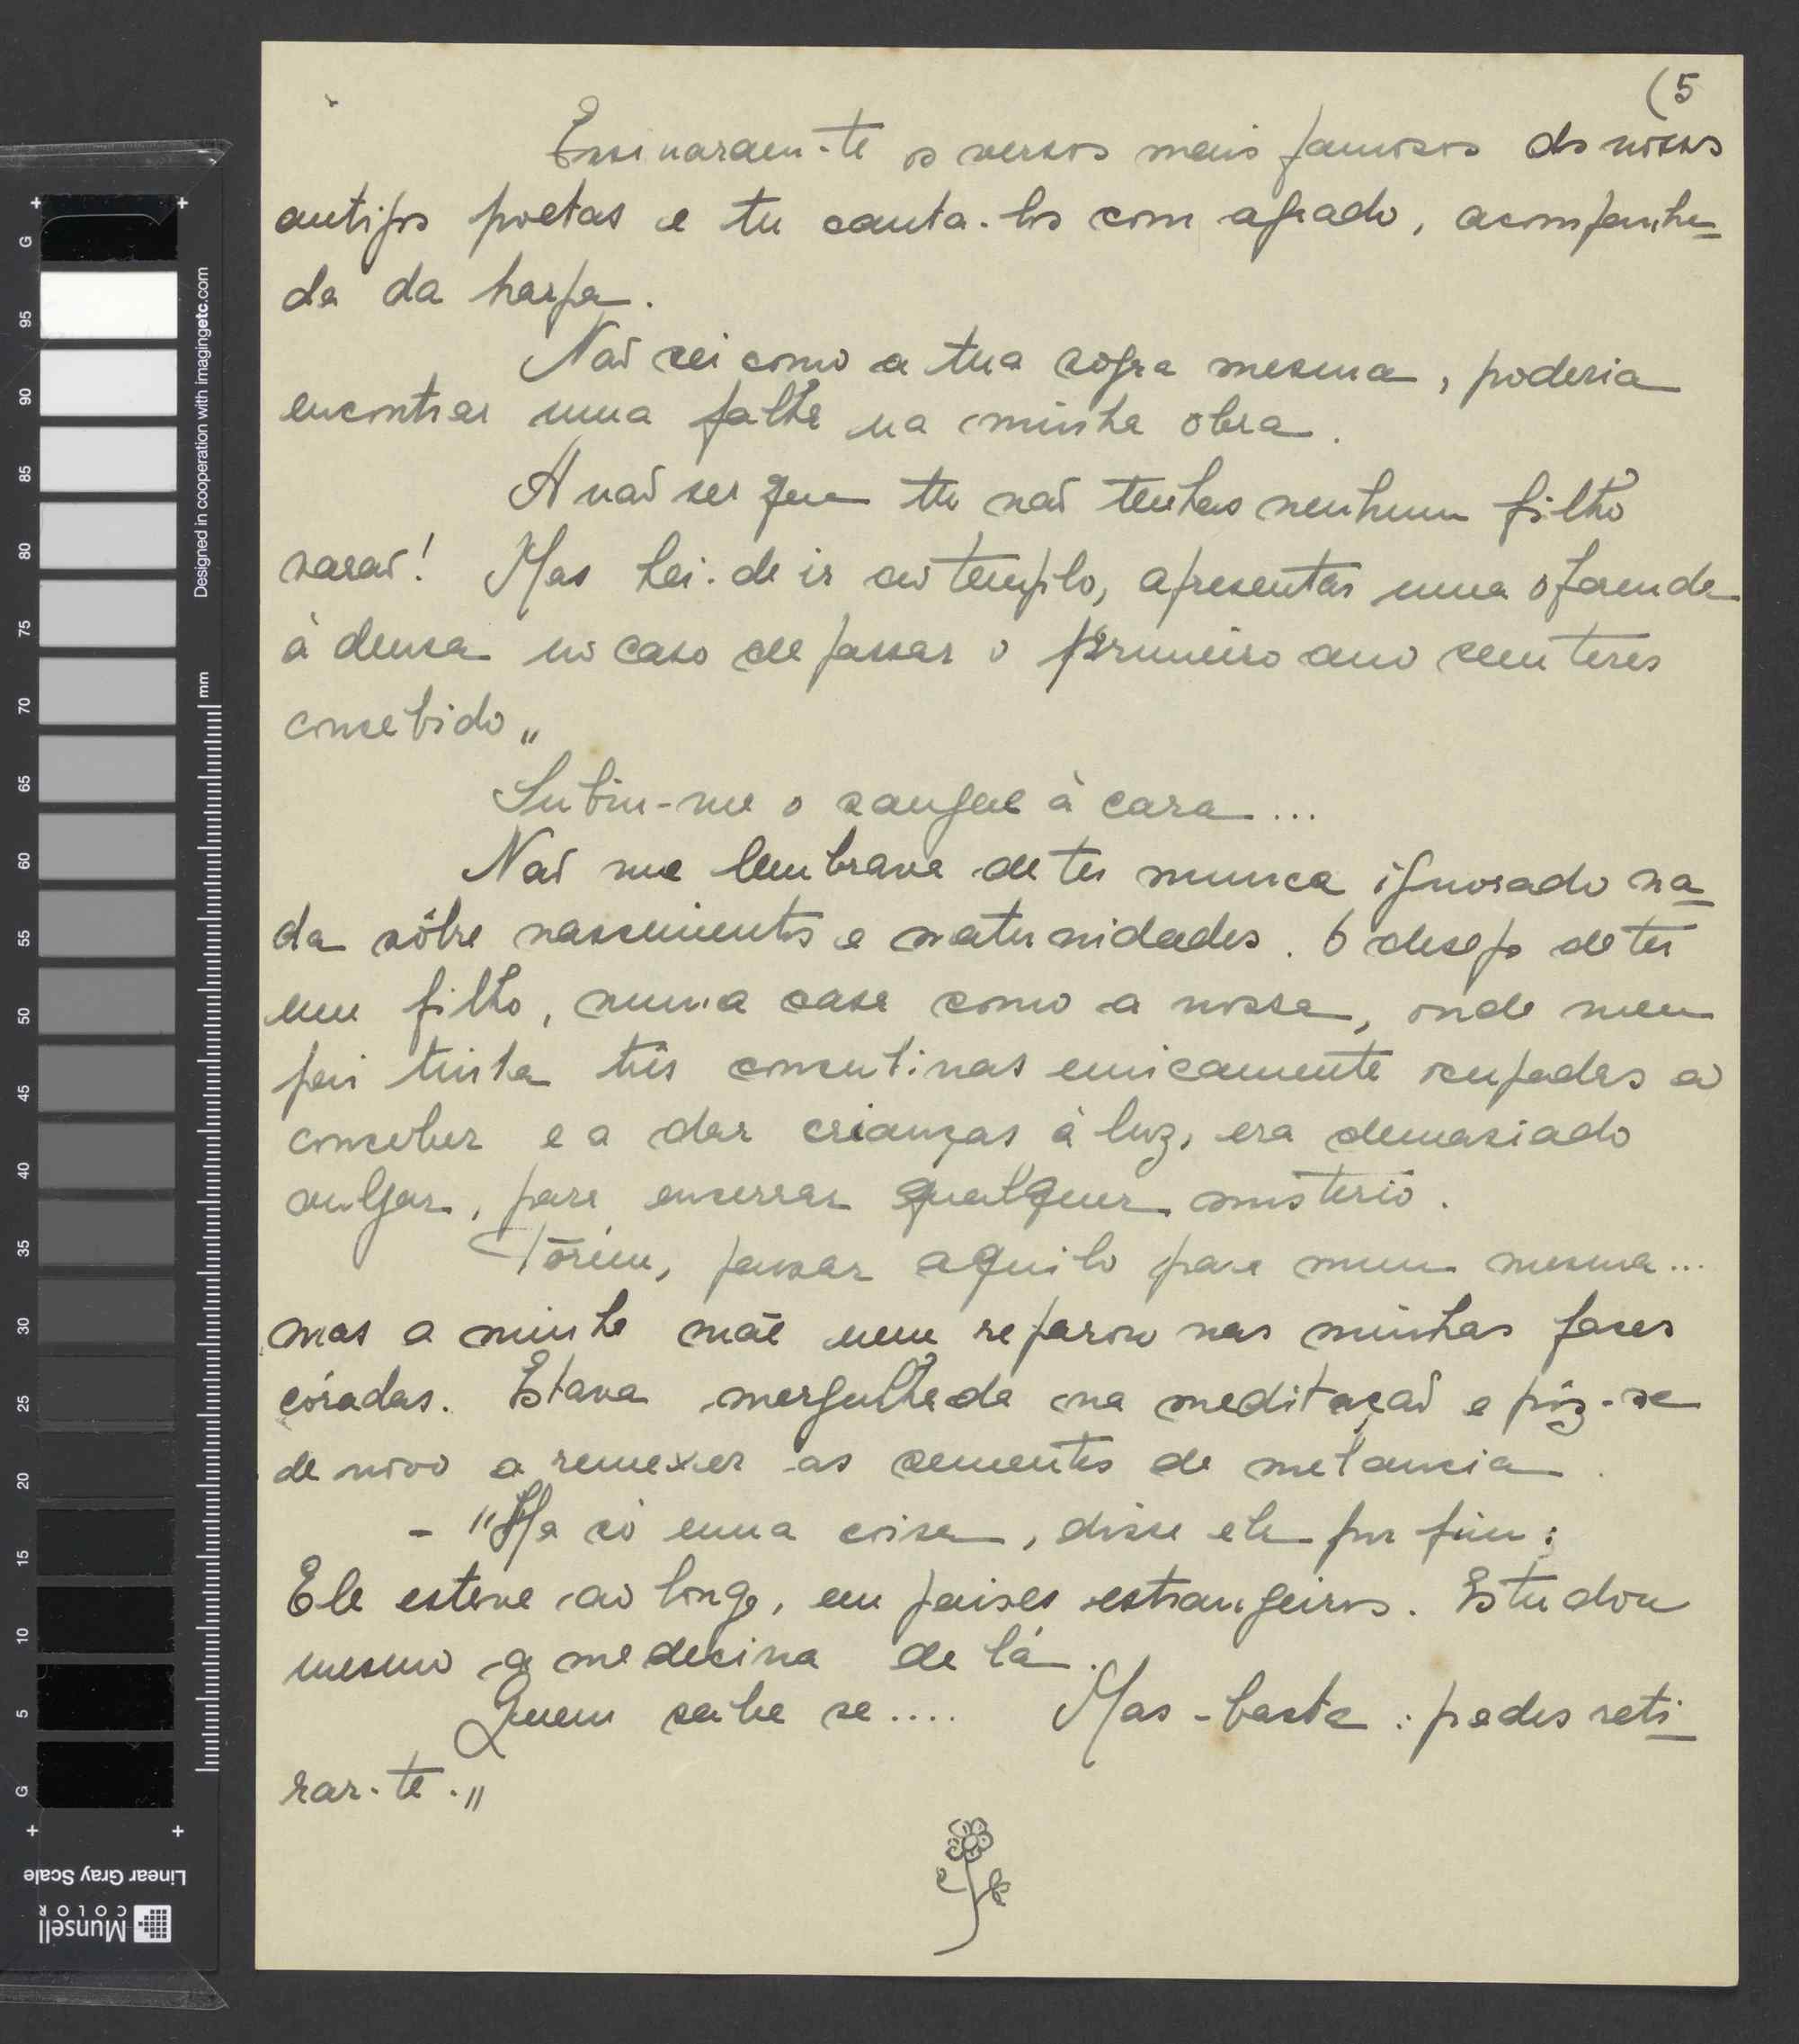 (5
Ensinaram-te os versos mais famosos dos nossos
antigos poetas e tu canta-los com agrado, acompanha=
da da harpa.
Não sei como a tua sogra mesma, poderia
encontrar uma falha na minha obra.
A não ser que tu não tenhas nenhum filho
varão! Mas hei-de ir ao templo, apresentar uma oferenda
à deusa no caso de passar o primeiro ano sem teres
concebido„
Subiu-me o sangue à cara...
Não me lembrava de ter nunca ignorado na=
da sôbre nascimentos e maternidades. O desejo de ter
um filho, numa casa como a nossa, onde meu
pai tinha três concubinas unicamente ocupadas a
conceber e a dar crianças à luz, era demasiado
vulgar, para encerrar qualquer misterio.
Pòrém, passar aquilo para mim mesma...
mas a minha mãe nem reparou nas minhas faces
córadas. Estava mergulhada na meditação e pôz-se
de novo a remexer as sementes de melancia.
- "Ha só uma coisa, disse ela por fim:
Ele esteve ao longe, em paises estrangeiros. Estudou
mesmo a medecina de lá.
Quem sabe se.... Mas-basta: podes reti=
rar-te.„
G
95
90
85
80
75
70
65
60
55
50
45
40
35
30
25
20
15
10
5
G
mm
Designed in cooperation with imagingetc.com
Linear Gray Scale
Munsell
COLOR